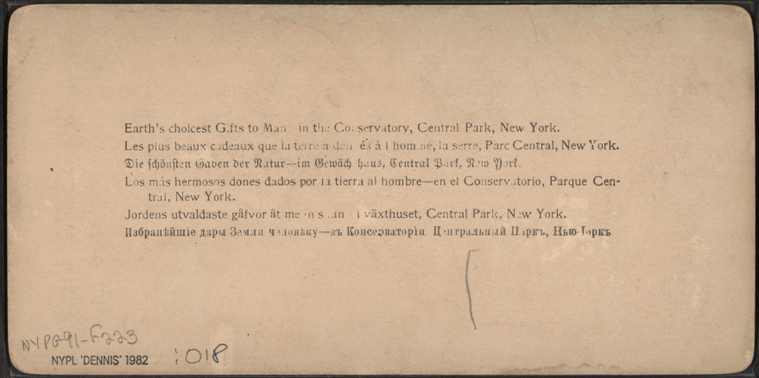 Earth's choicest Gifts to Man in the Conservatory, Central Park, New York.
Les plus beaux cadeaux que la terre a donnés à l'homme, la serre, Parc Central, New York.
Die schönsten Gaben der Natur—im Gewächshaus, Central Park, New York.
Los más hermosos dones dados por la tierra al hombre—en el Conservatorio, Parque Cen-
tral, New York.
Jordens utvaldaste gåfvor åt menskan i växthuset, Central Park, New York.
Избранѣйшіе дары Земли человѣку—въ Консерваторіи Центральный Паркъ, Нью-Іоркъ
NYPG91-F223
NYPL 'DENNIS' 1982 :018